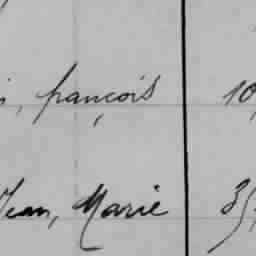 françois 10,
Jean, Marie 35,